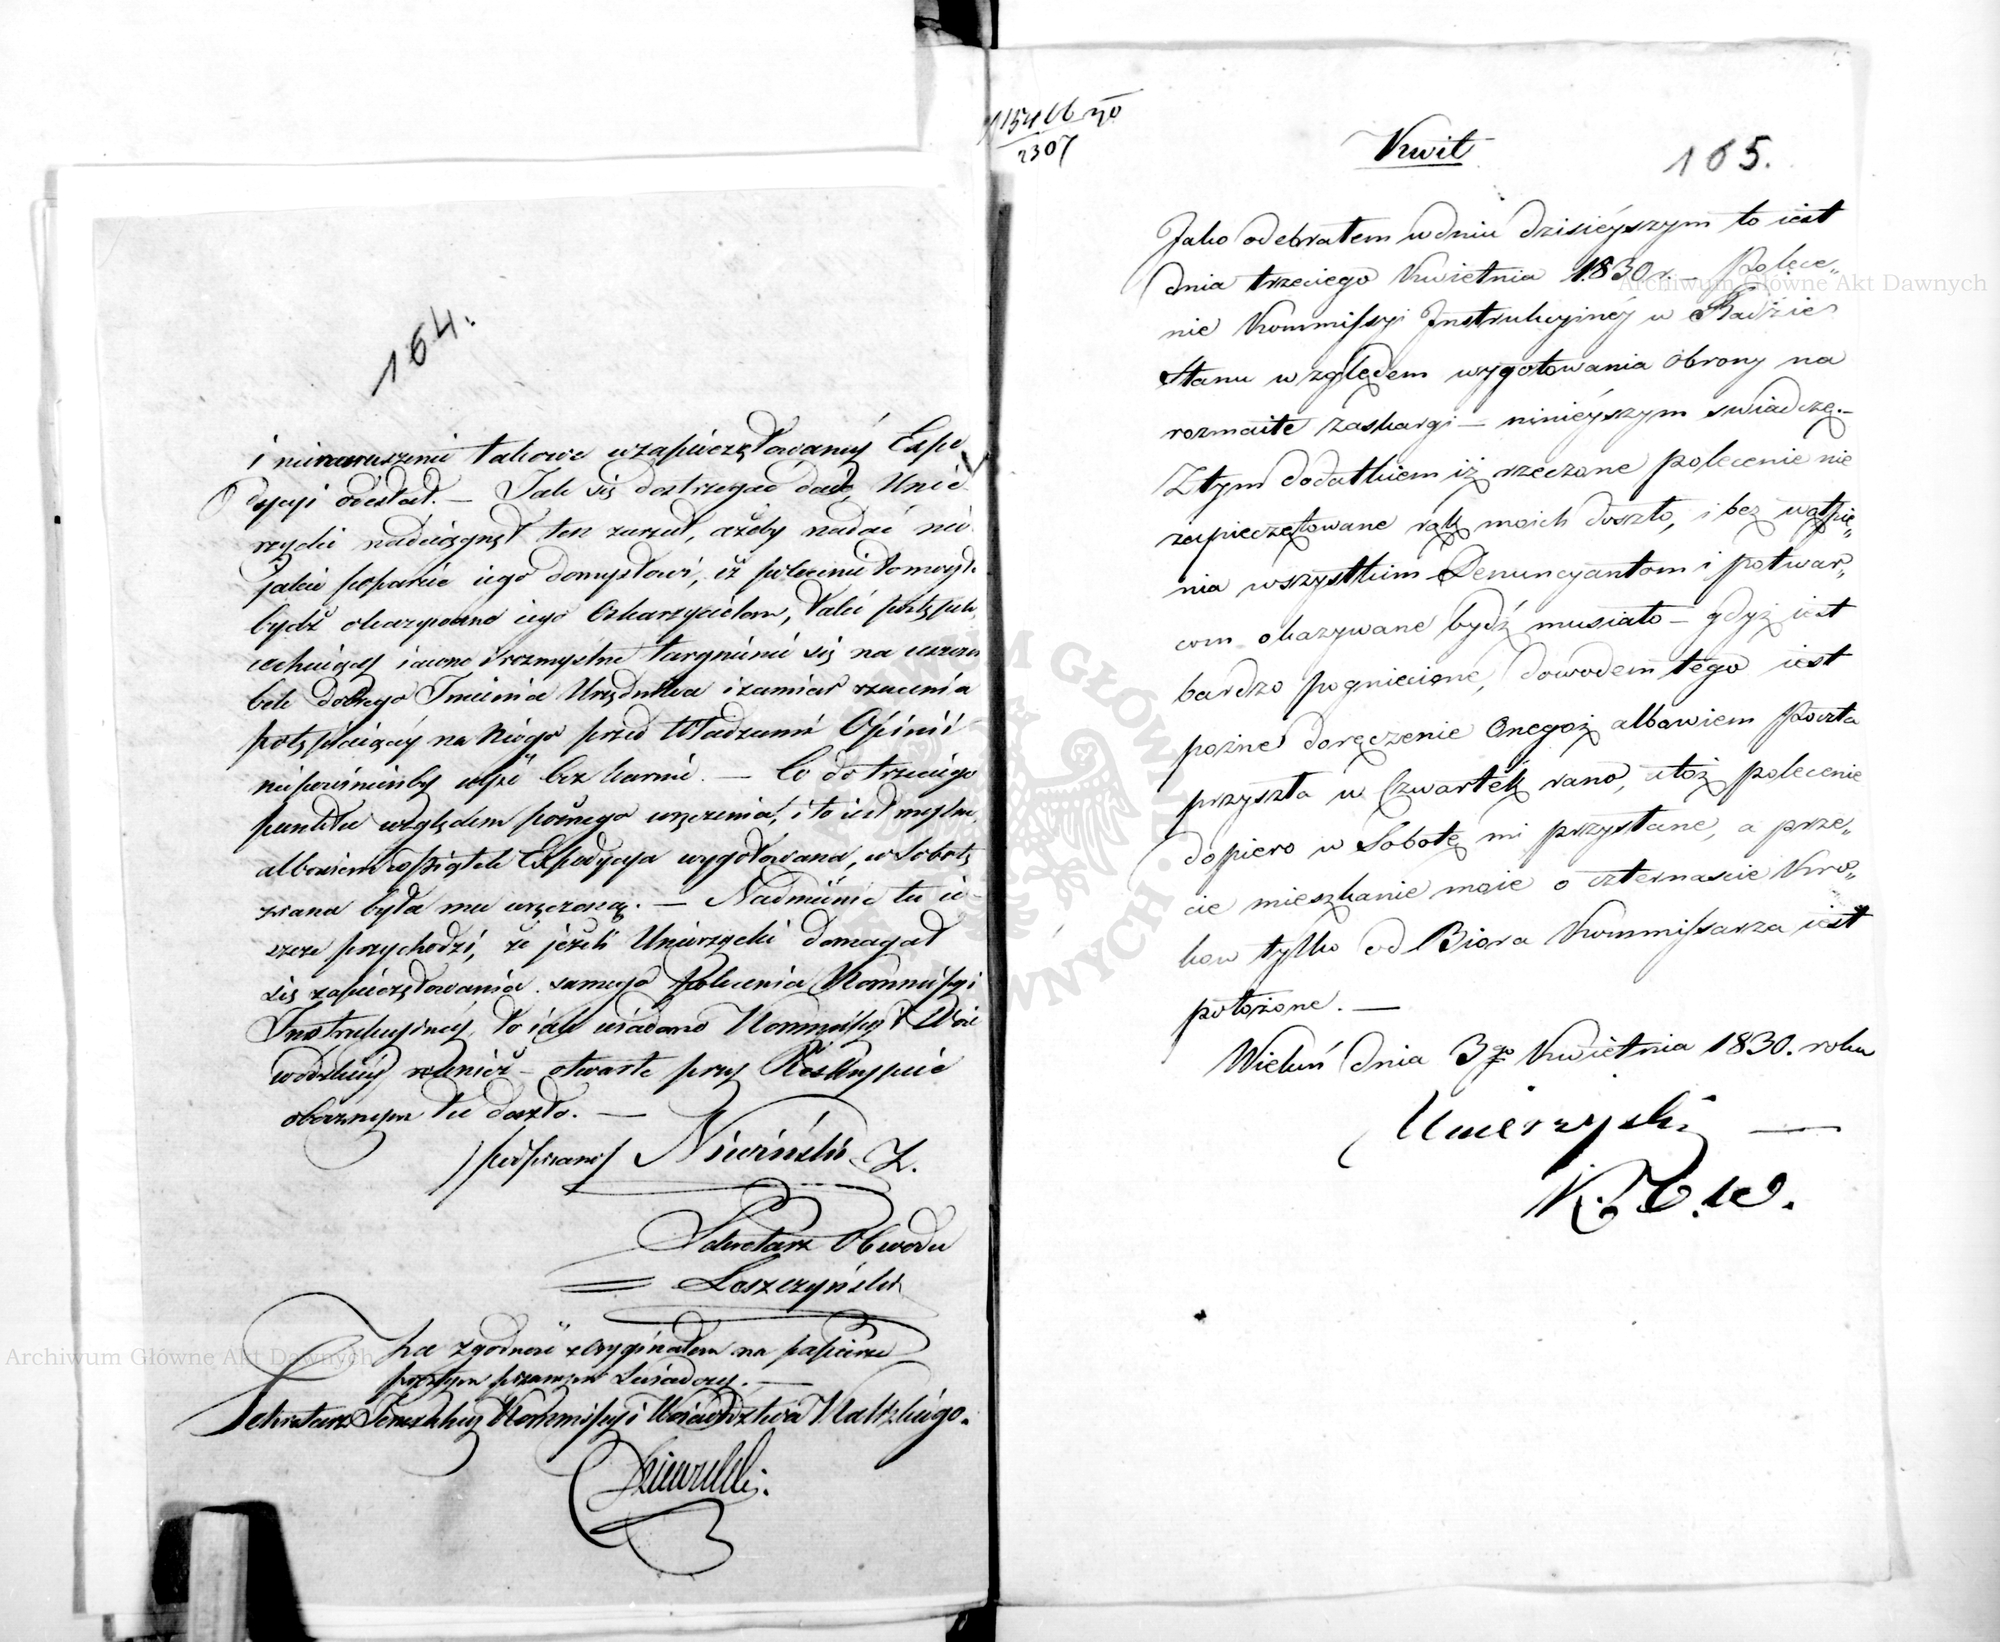 164.
i nienaruszenie takowe w zapieczętowanéy Expe
dycyi odesłał. — Jak się dostrzegać daie, Unie
rzycki nadciągnął ten zarzut, ażeby nadać nie
jakie poparcie iego domysłowi, iż polecenie to mogło
bydź okazywane iego Oskarzycielom,
iawne i rozmyślne targnienie się na uszczer
bek dobrego Imienia Urzędnika i zamiar rzucenia
potępiaiącéy na Niego przed Władzami Opinii
bez karnie. — Co do trzeciego
punktu względem poźnego wręczenia, i to iest mylne,
albowiem w Piątek Expedycya wygotowana, w Sobotę
zrana była mu wręczoną. — Nadmienić tu ie-
szcze przychodzi, że jeżeli Unierzycki domagał
się zapieczętowania samego Polecenia Kommissyi
Instrukcyinéy, to iak wiadomo Kommissyi Woie
wódzkiéy również otwarte przy Reskrypcie
obecnym tu doszło. —
podpisano Niwiński Z.
Sekretarz Obwodu
Leszczyński
Za zgodność z Oryginałem na papierze
prostym pisanym świadczy. —
Sekretarz Jeneralny Kommissyi Woiewództwa Kaliskiego.
11546 b 30
2307
Kwit
165.
Jako odebrałem w dniu dzisiéyszym to iest
dnia trzeciego Kwietnia 1830 r. — Polece„
nie Kommissyi Instrukcyinéy w Radzie
Stanu względem wygotowania obrony na
rozmaite zaskargi — niniéyszym swiadczę. —
Z tym dodatkiem iż rzeczone polecenie nie
zapieczętowane rąk moich doszło, i bez wątpie„
nia wszystkim Denuncyantom i potwar„
com okazywane bydź musiało — gdyż iest
bardzo pogniecione, dowodem tego iest
poźne doręczenie Onegoż albowiem Poczta
przyszła w Czwartek rano, a toż polecenie
dopiero w Sobotę mi przysłane, a prze„
cie mieszkanie moie o czternascie Kro„
kow tylko od Biora Kommissarza iest
położone. —
Wieluń dnia 3go Kwietnia 1830. roku
Unierzyski —
K. O. W.
Archiwum Główne Akt Dawnych
Archiwum Główne Akt Dawnych